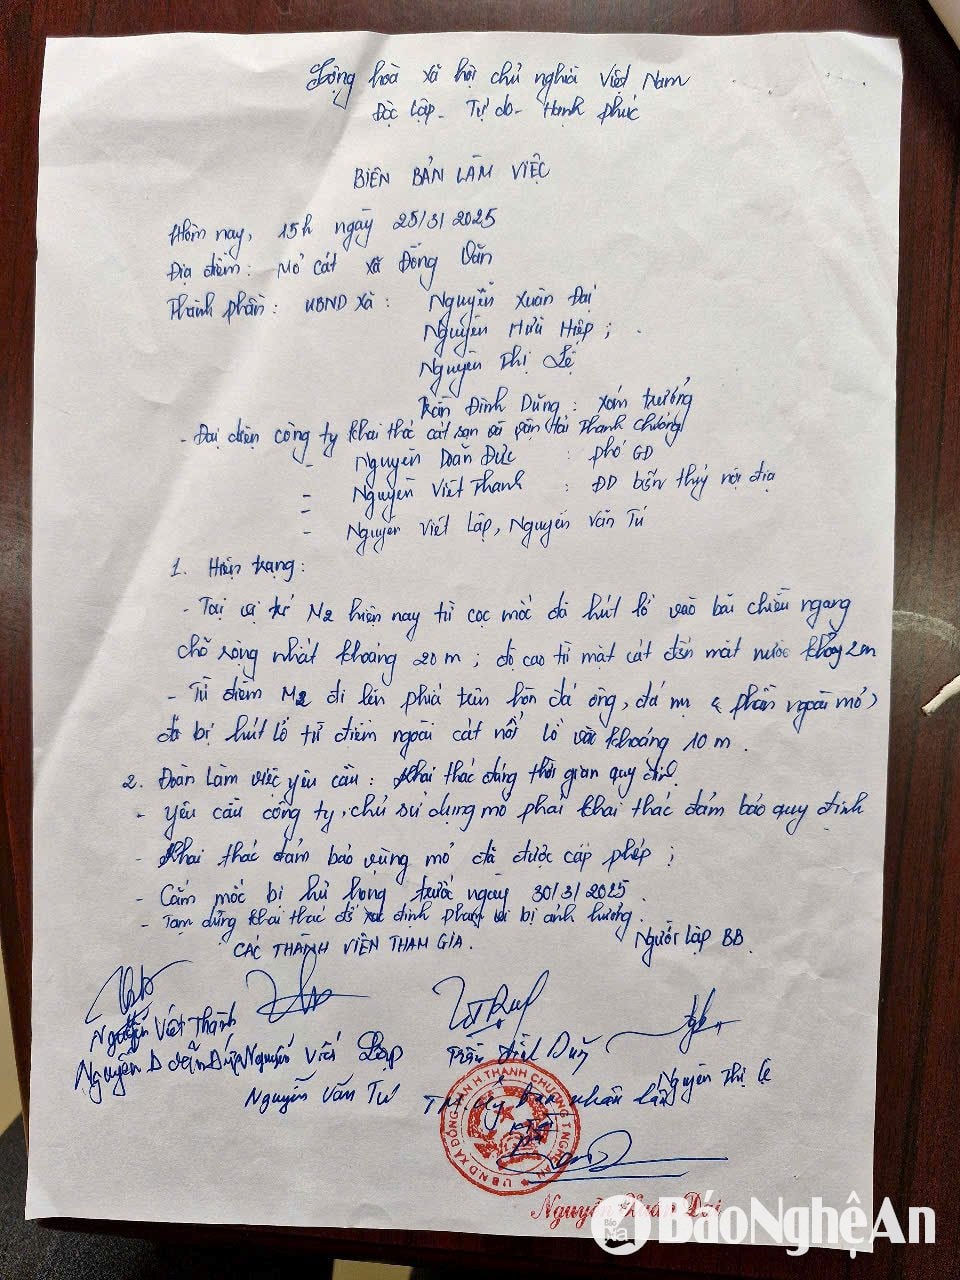 Cộng hòa xã hội chủ nghĩa Việt Nam
Độc lập - Tự do - Hạnh phúc
BIÊN BẢN LÀM VIỆC
Hôm nay, 15h ngày 25/3/2025
Địa điểm: Mỏ cát xã Đồng Văn
Thành phần: UBND xã: Nguyễn Xuân Đại
Nguyễn Hữu Hiệp;
Nguyễn Thị Lệ
Trần Đình Dũng: xóm trưởng
- Đại diện công ty khai thác cát sạn và vận tải Thanh Chương
- Nguyễn Doãn Đức : phó GĐ
- Nguyễn Viết Thanh : ĐD bến thủy nội địa
- Nguyễn Viết Lập, Nguyễn Văn Tú
1. Hiện trạng:
- Tại vị trí M2 hiện nay từ cọc mốc đã hút lở vào bãi chiều ngang
chỗ rộng nhất khoảng 20m; độ cao từ mặt cát đến mặt nước khoảng 2m
- Từ điểm M2 đi lên phía trên hòn đá ông, đá mụ (phần ngoài mỏ)
đã bị hút lở từ điểm ngoài cát nổi lở vào khoảng 10m.
2. Đoàn làm việc yêu cầu: Khai thác đúng thời gian quy định
- yêu cầu công ty, chủ sử dụng mỏ phải khai thác đảm bảo quy định
- Khai thác đảm bảo vùng mỏ đã được cấp phép;
- Cắm mốc bị hư hỏng trước ngày 30/3/2025.
- Tạm dừng khai thác để xác định phạm vi bị ảnh hưởng.
CÁC THÀNH VIÊN THAM GIA. Người lập BB
Nguyễn Viết Thanh
Nguyễn Doãn Đức Nguyễn Viết Lập Trần Đình Dũng Nguyễn Thị Lệ
Nguyễn Văn Tú TM. Ủy ban nhân dân
U.B.N.D XÃ ĐỒNG VĂN H.THANH CHƯƠNG T.NGHỆ AN
Nguyễn Xuân Đại
Báo Na
BáoNghệAn